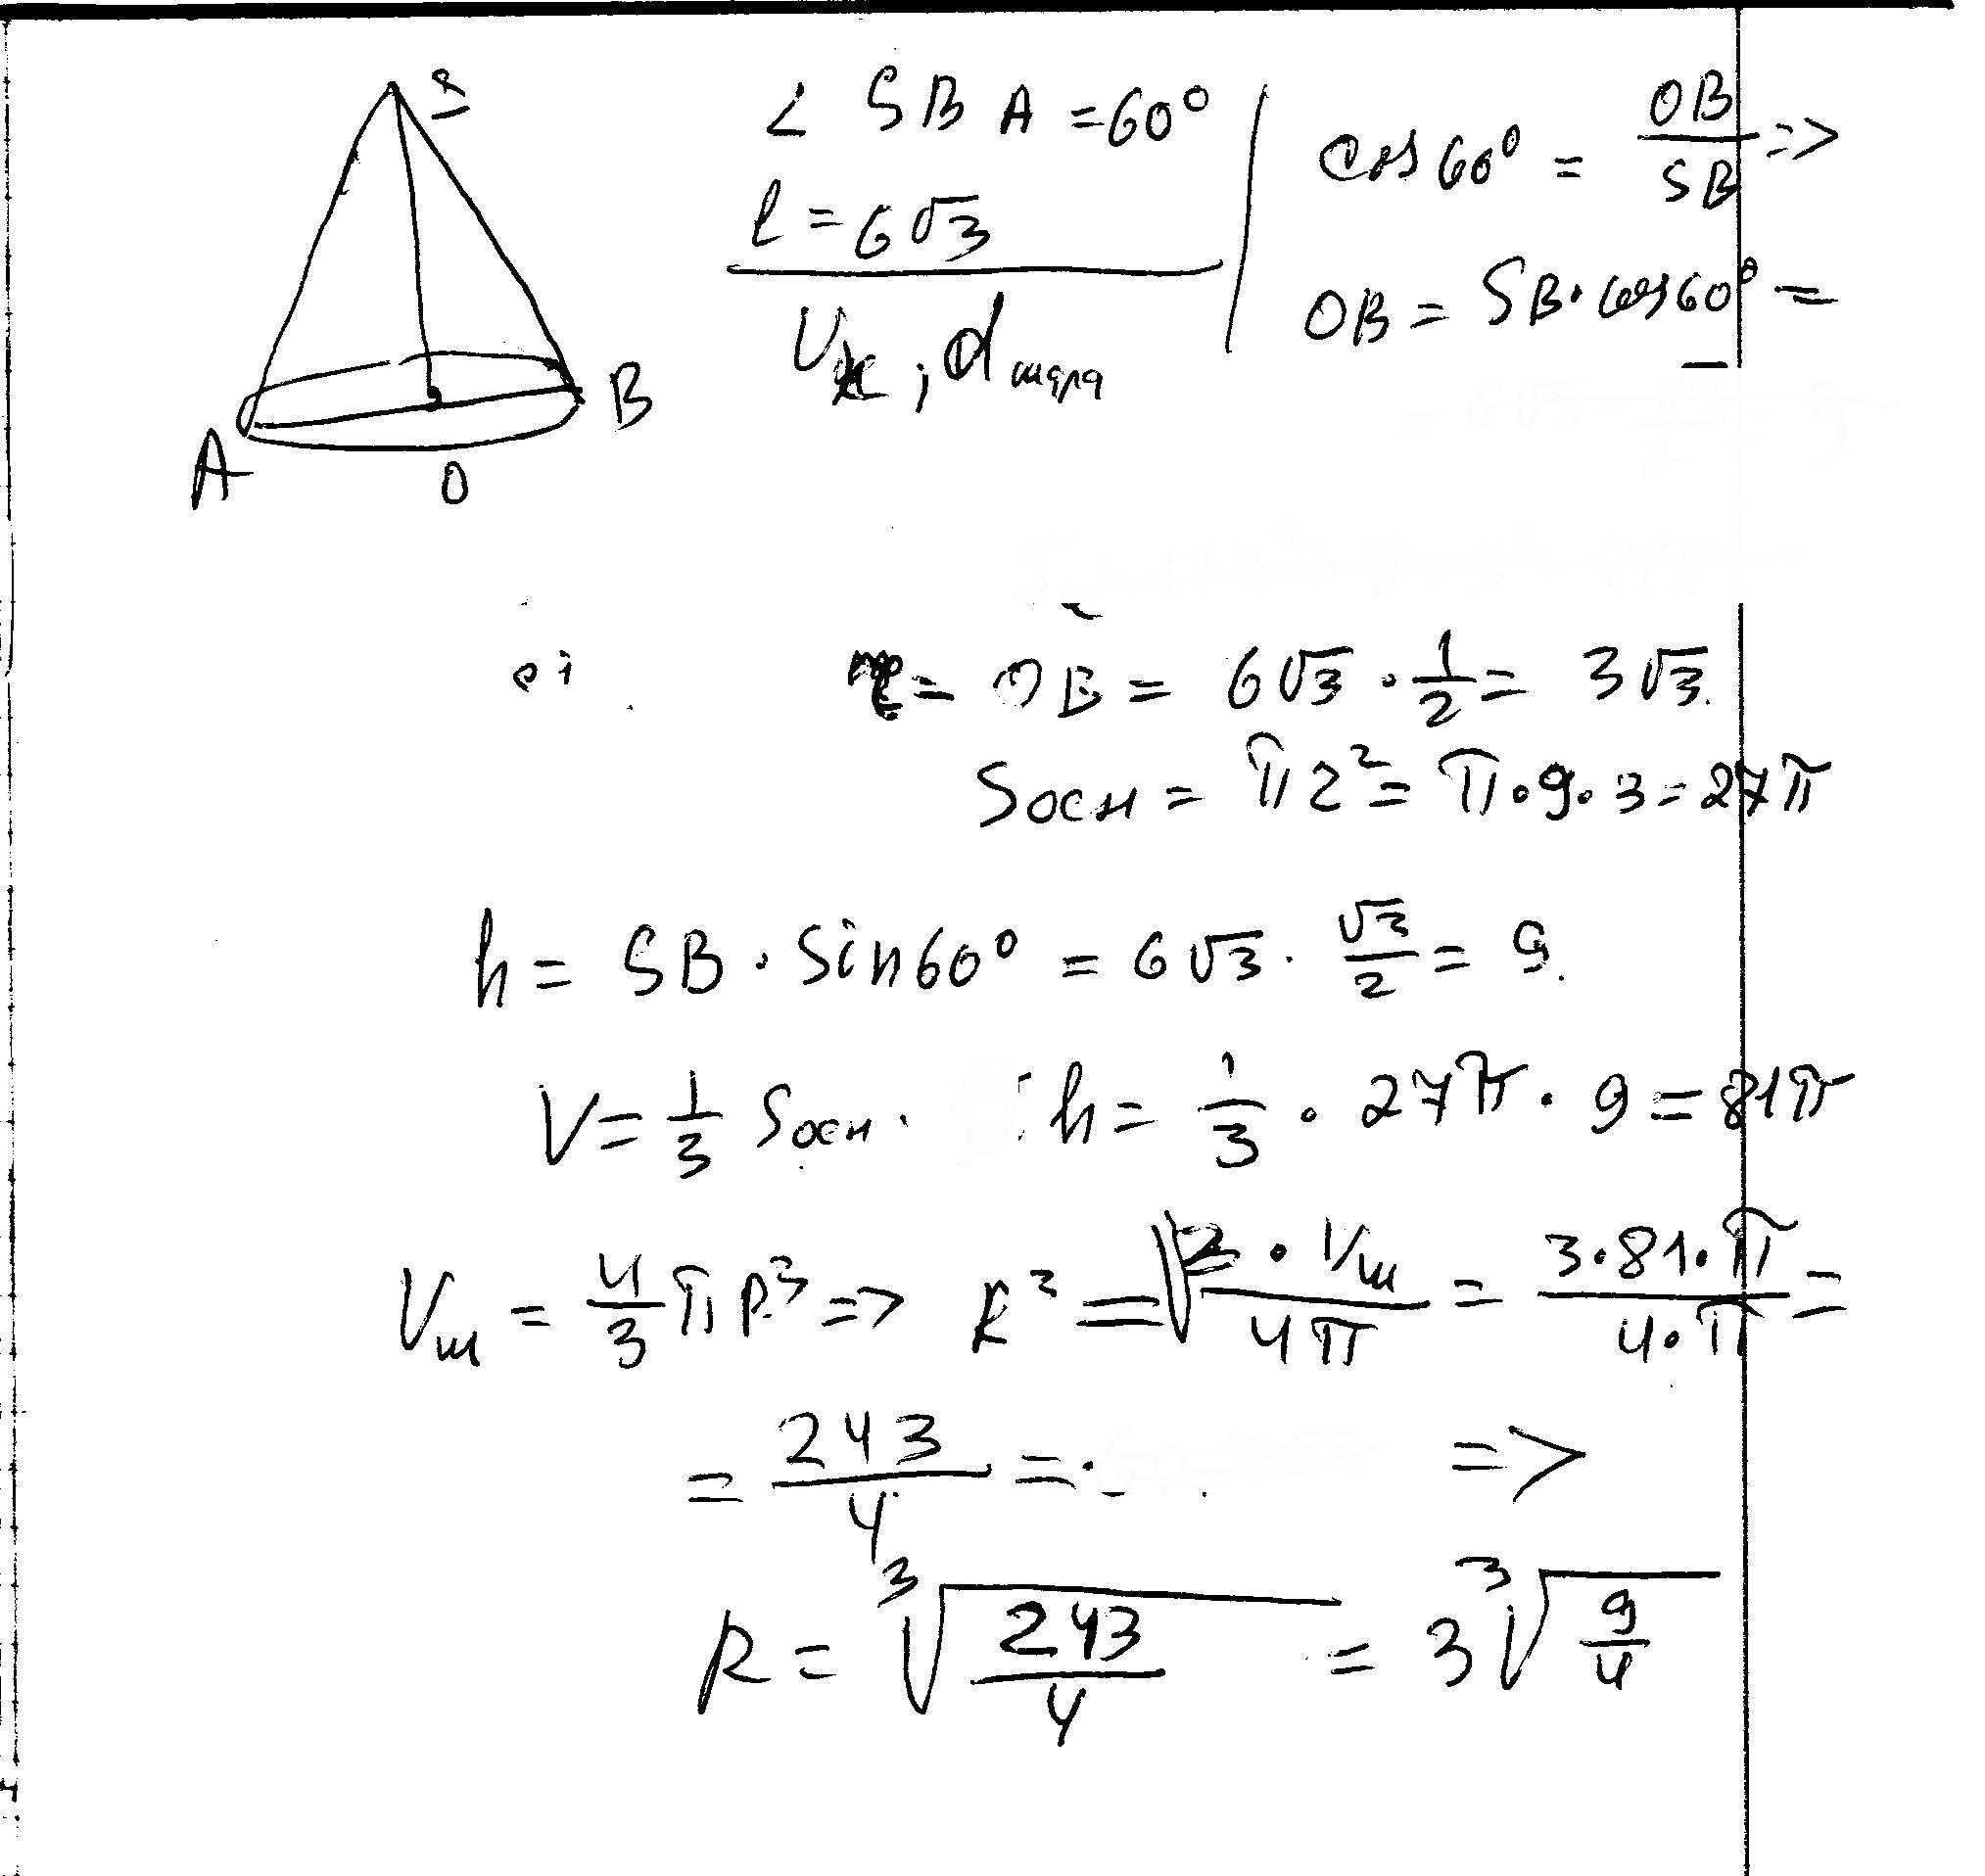 S
A
O
B
∠ SBA = 60°
l = 6√3
Vк, d шара
cos 60° = OB/SB =>
OB = SB · cos 60° =
r = OB = 6√3 · 1/2 = 3√3.
Sосн = πr² = π·9·3 = 27π
h = SB · sin 60° = 6√3 · √3/2 = 9.
V = 1/3 Sосн · h = 1/3 · 27π · 9 = 81π
Vш = 4/3 πR³ => R³ = 3·Vш/4π = 3·81·π/4·π =
= 243/4 = =>
R = ³√(243/4) = 3 ³√(9/4)